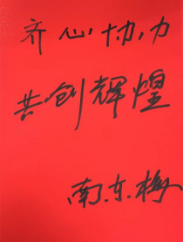 齐心协力
共创辉煌
南东梅